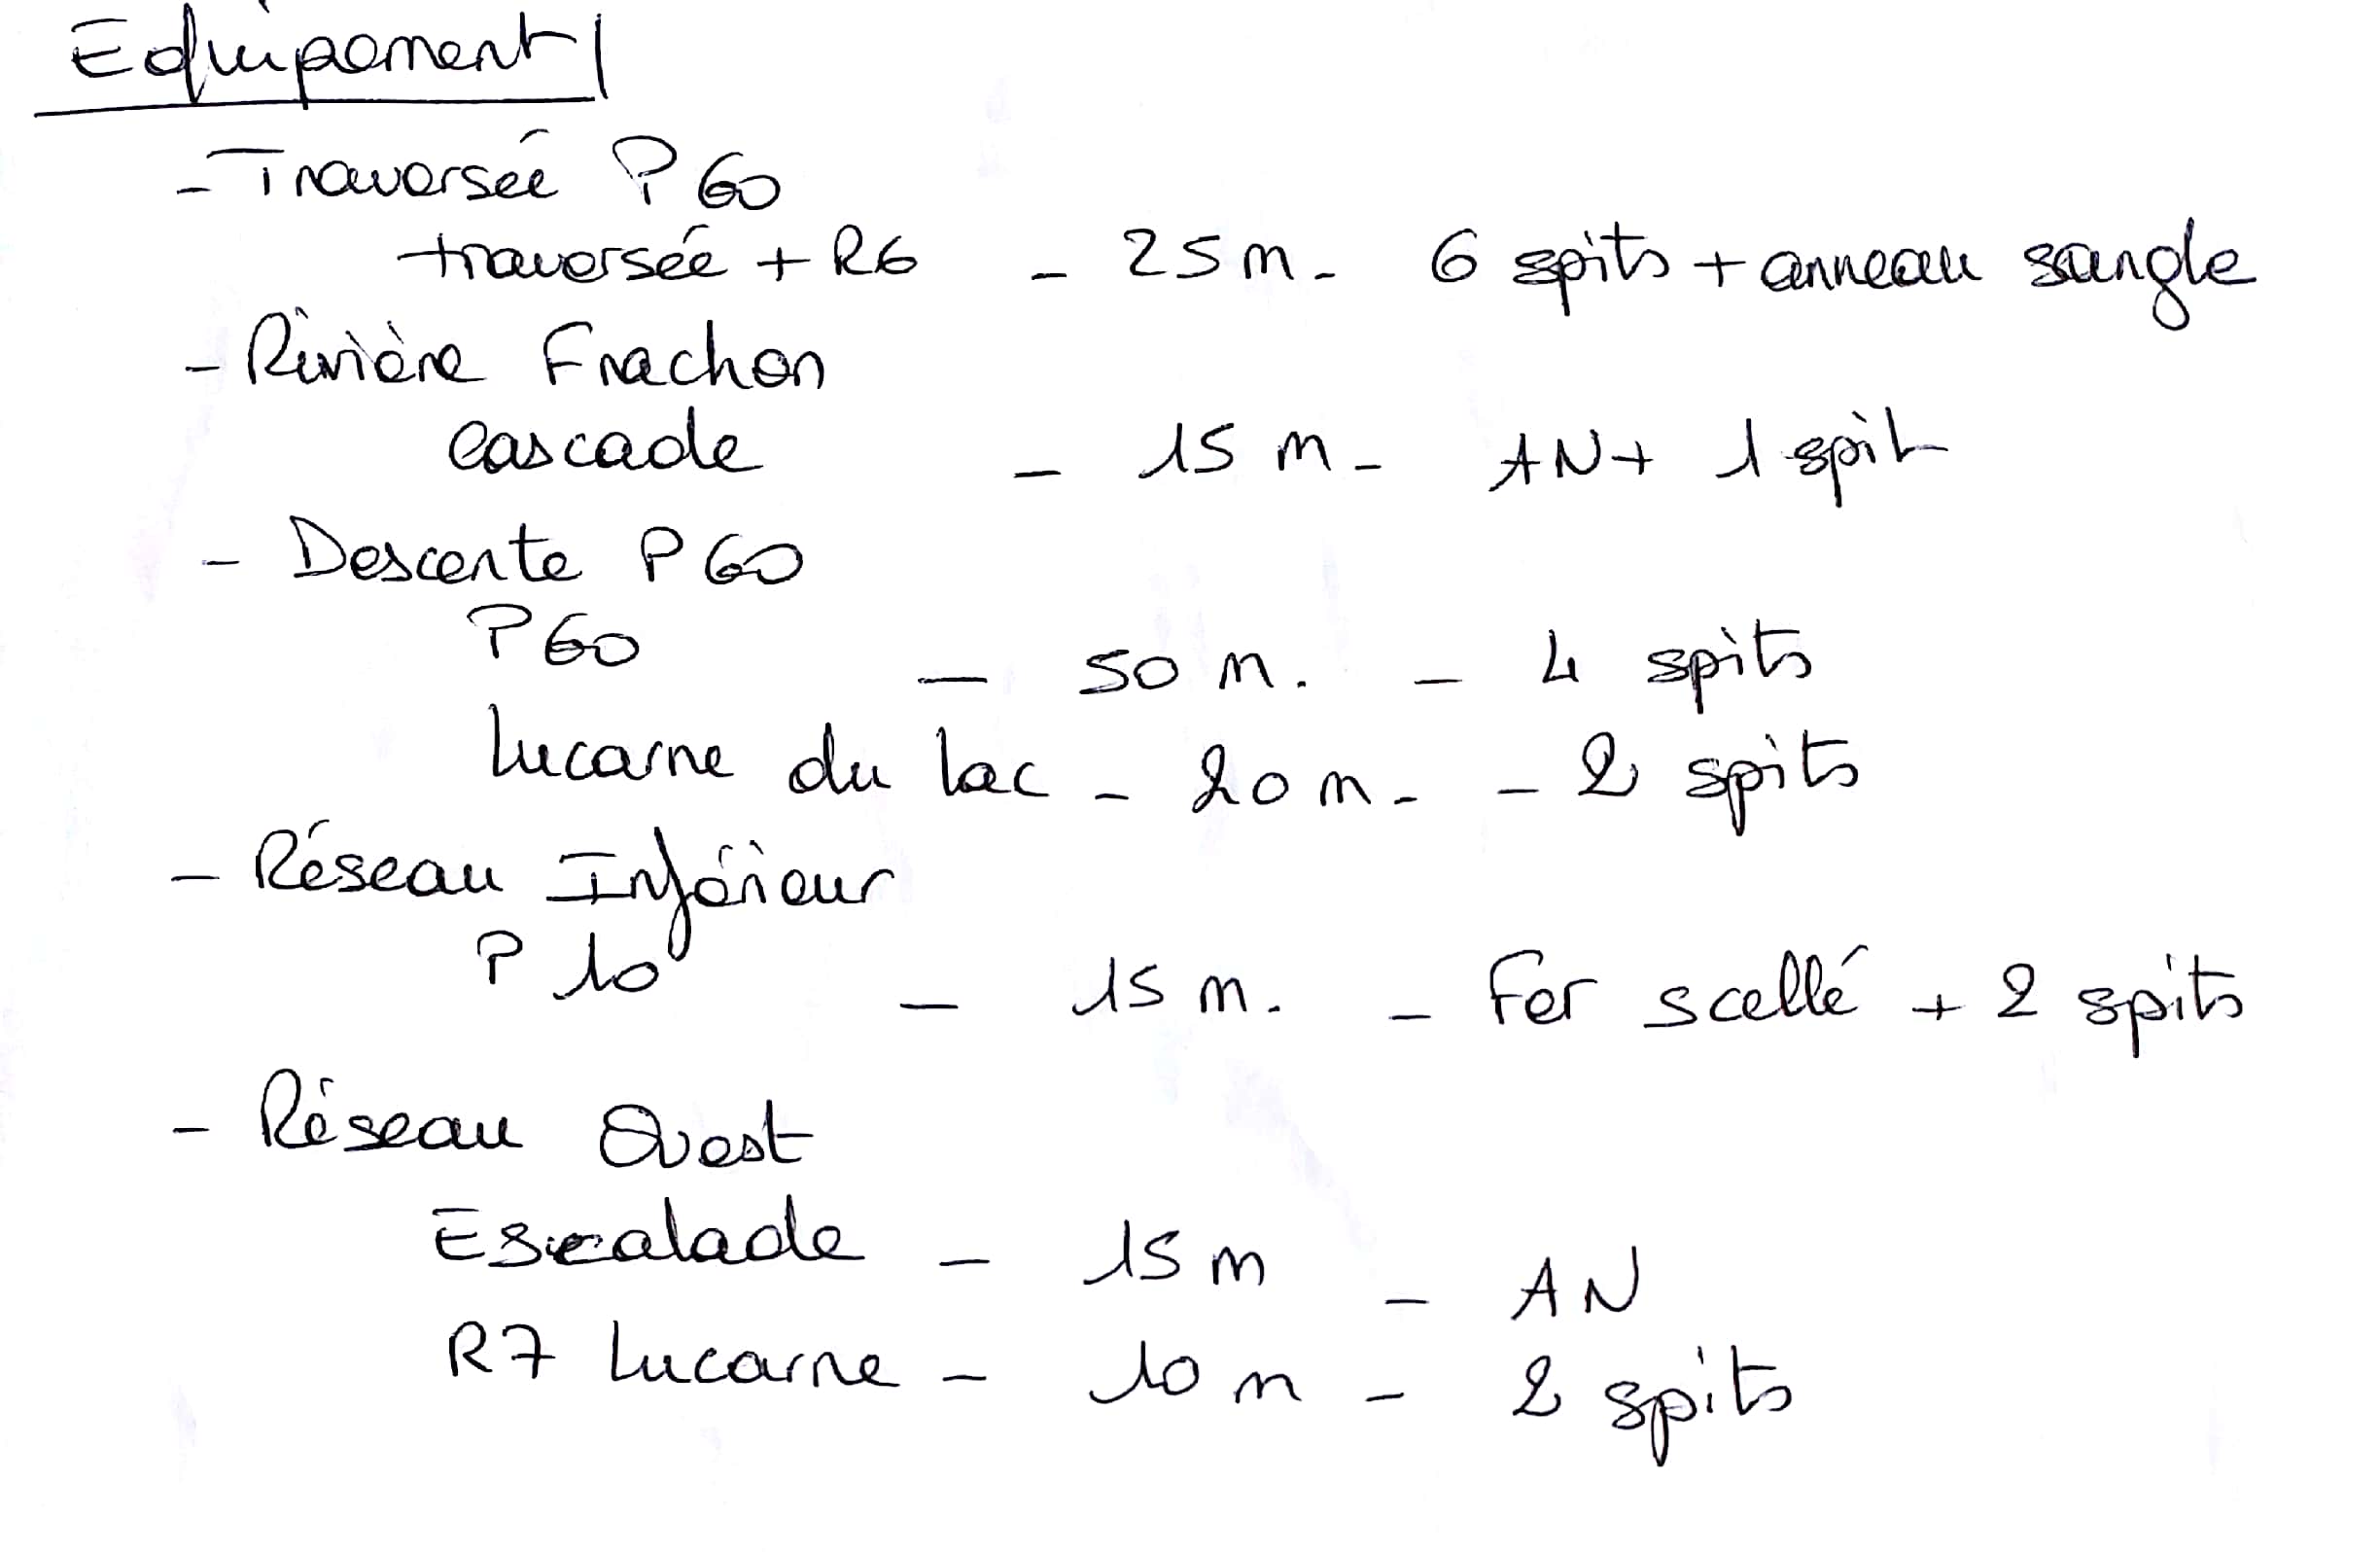 Equipement
- Traversée P60
traversée + R6 - 25 m - 6 spits + anneau sangle
- Rivière Frachon
Cascade - 15 m - AN + 1 spit
- Descente P60
P60 - 50 m. - 4 spits
Lucarne du lac - 20 m. - 2 spits
- Réseau Inférieur
P 10 - 15 m. - Fer scellé + 2 spits
- Réseau Ouest
Escalade - 15 m - AN
R7 Lucarne - 10 m - 2 spits